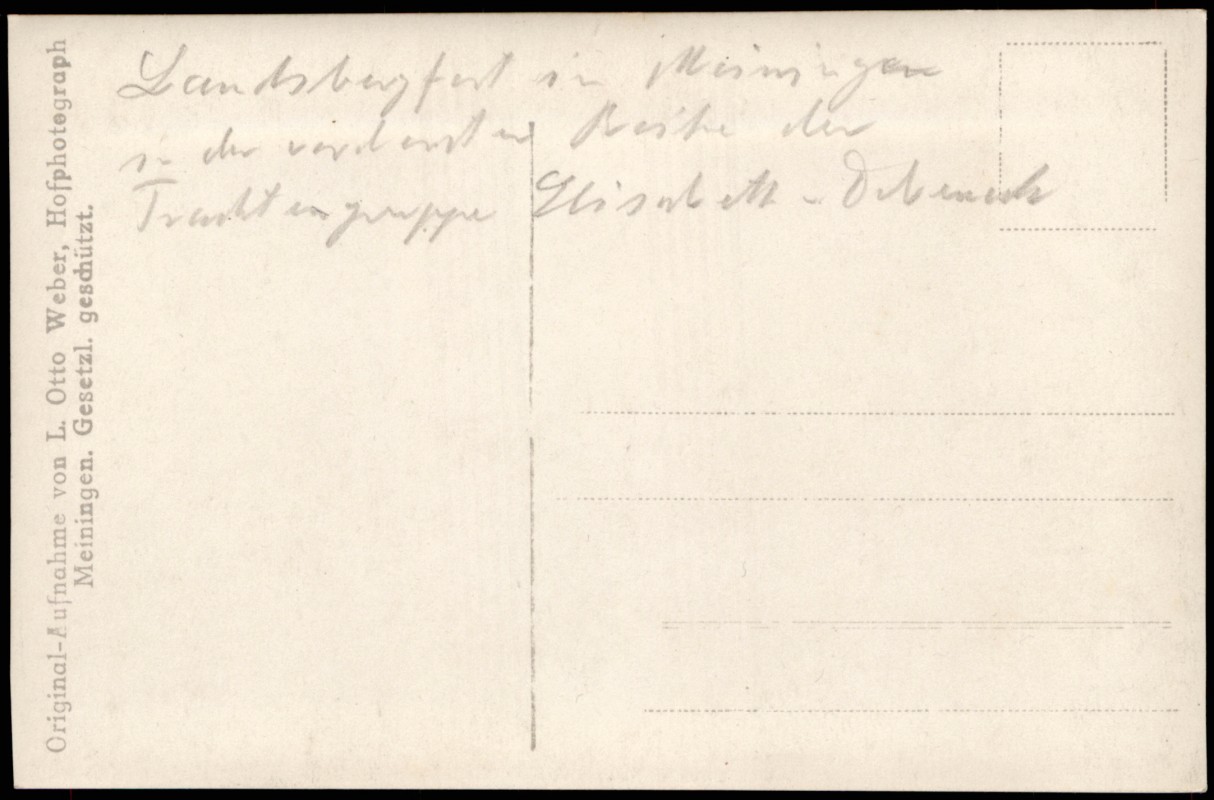 Landsbergfest in Meiningen
in der vordersten Reihe der
Trachtengruppe Elisabeth -
Original-Aufnahme von L. Otto Weber, Hofphotograph
Meiningen. Gesetzl. geschützt.